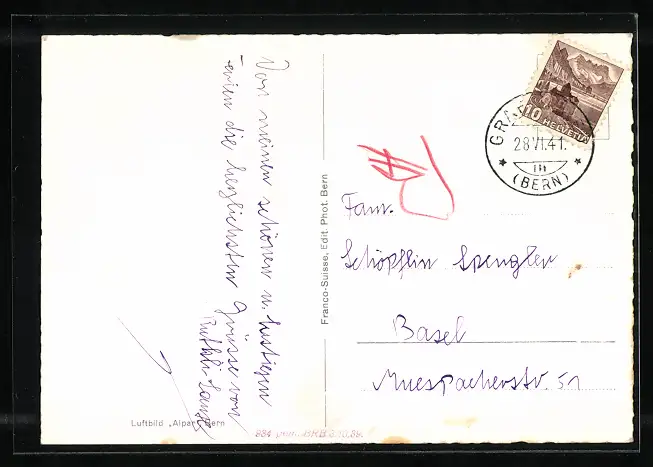 Von meinen schönen u. lustigen
Ferien die herzlichsten Grüsse von
Ruthli
Luftbild „Alpar" Bern
Franco-Suisse, Edit. Phot. Bern
10 HELVETIA
28.VI.41.
(BERN)
Fam.
Schöpflin Spengler
Basel
Muespacherstr. 51